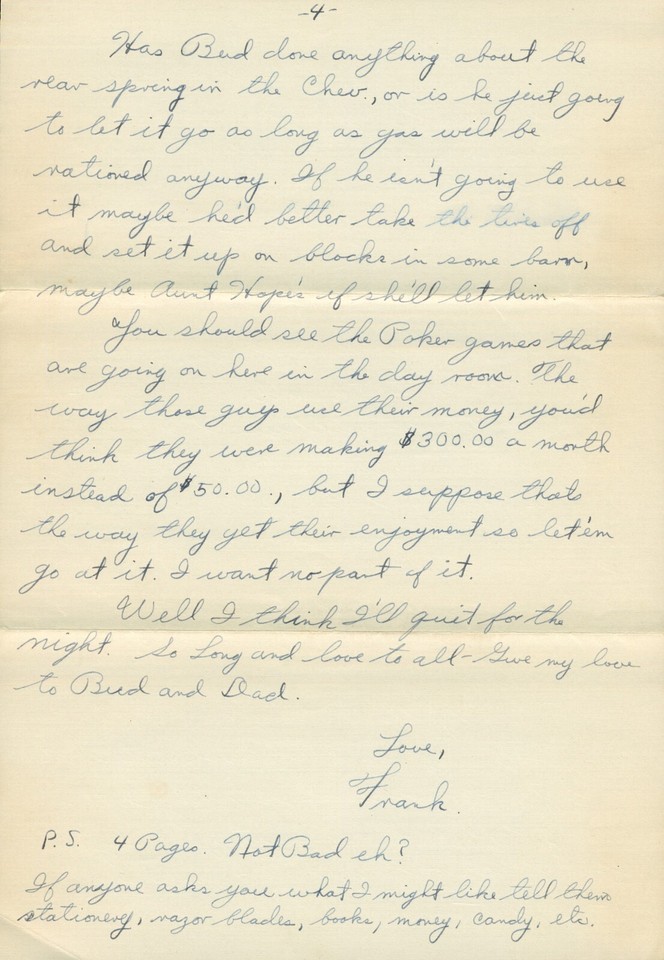 -4-
Has Bud done anything about the
rear spring in the Chev., or is he just going
to let it go as long as gas will be
rationed anyway. If he isn't going to use
it maybe he'd better take the tires off
and set it up on blocks in some barn,
maybe Aunt Hope's if she'll let him.
You should see the Poker games that
are going on here in the day room. The
way those guys use their money, you'd
think they were making $300.00 a month
instead of $50.00., but I suppose thats
the way they get their enjoyment so let'em
go at it. I want no part of it.
Well I think I'll quit for the
night. So Long and love to all - Give my love
to Bud and Dad.
Love,
Frank.
P.S. 4 Pages. Not Bad eh?
If anyone asks you what I might like tell them
stationery, razor blades, books, money, candy, etc.